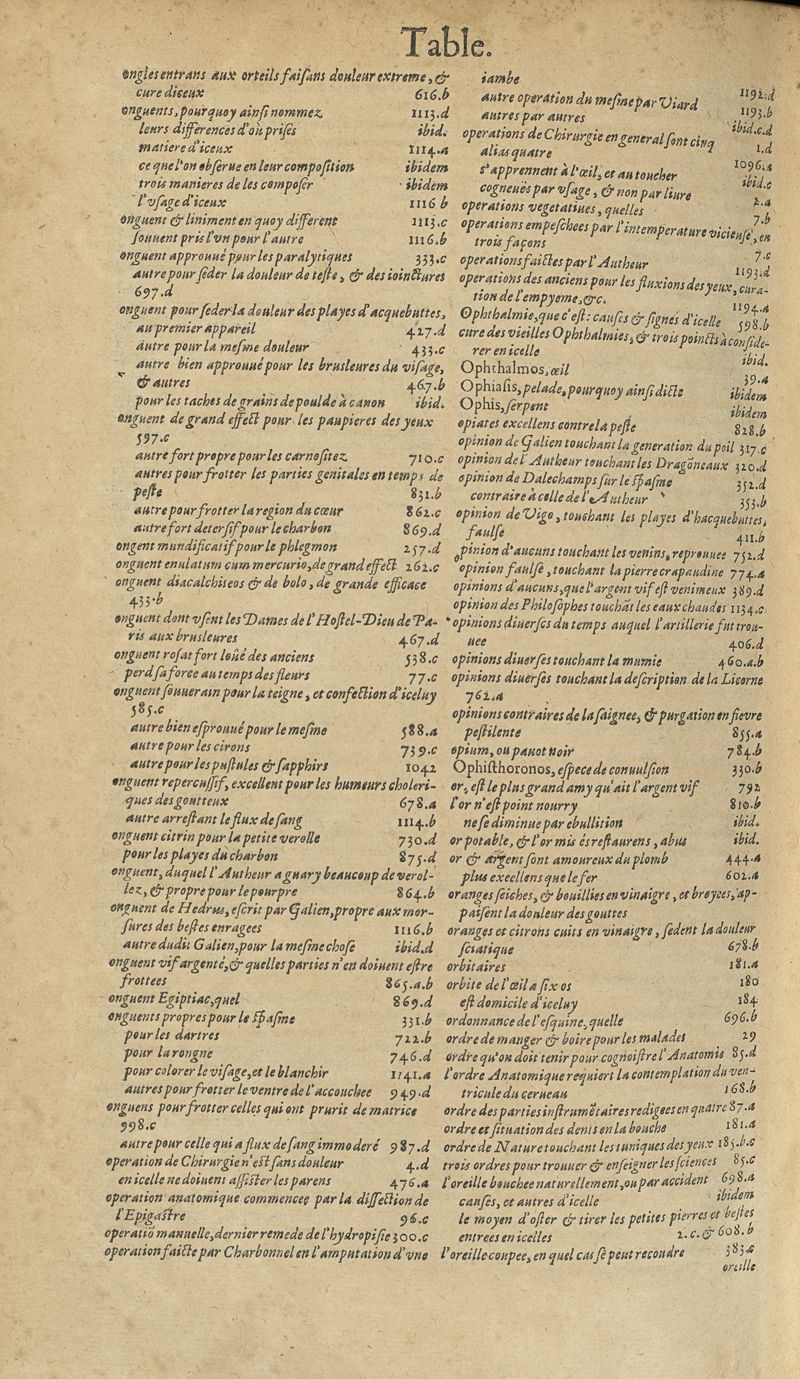 Table.
ongles entrans aux orteils faiſans douleur extreme, &
cure diceux 616.b
onguents, pourquoy ainſi nommez 1113.d
leurs differences d'où priſes ibid.
matiere d'iceux 1114.a
ce que l'on obſerue en leur compoſition ibidem
trois manieres de les compoſer ibidem
l'vſage d'iceux 1116 b
onguent & liniment en quoy different 1113.c
ſouuent pris l'vn pour l'autre 1116.b
onguent approuué pour les paralytiques 333.c
autre pour ſeder la douleur de teſte, & des ioinctures
697.d
onguent pour ſeder la douleur des playes d'acquebuttes,
au premier appareil 427.d
autre pour la meſme douleur 433.c
autre bien approuué pour les bruſleures du viſage,
& autres 467.b
pour les taches de grains de poulde à canon ibid.
onguent de grand effect pour les paupieres des yeux
597.c
autre fort propre pour les carnoſitez 710.c
autres pour frotter les parties genitales en temps de
peſte 831.b
autre pour frotter la region du cœur 862.c
autre fort deterſif pour le charbon 869.d
ongent mundificatif pour le phlegmon 257.d
onguent enulatum cum mercurio, de grand effect 262.c
onguent diacalchiteos & de bolo, de grande efficace
433.b
onguent dont vſent les Dames de l'Hoſtel-Dieu de Pa-
ris aux bruſleures 467.d
onguent roſat fort loüé des anciens 538.c
perd ſa force au temps des fleurs 77.c
onguent ſouuerain pour la teigne, et confection d'iceluy
585.c
autre bien eſprouué pour le meſme 588.a
autre pour les cirons 739.c
autre pour les puſtules & ſapphirs 1042
onguent repercuſſif, excellent pour les humeurs choleri-
ques des goutteux 678.a
autre arreſtant le flux de ſang 1114.b
onguent citrin pour la petite verolle 730.d
pour les playes du charbon 875.d
onguent, duquel l'Autheur a guary beaucoup de verol-
lez, & propre pour le pourpre 864.b
onguent de Hedrus, eſcrit par Galien, propre aux mor-
ſures des beſtes enragees 1116.b
autre dudit Galien, pour la meſme choſe ibid.d
onguent vif argenté, & quelles parties n'en doiuent eſtre
frottees 865.a.b
onguent Egiptiac, quel 869.d
onguents propres pour le Spaſme 331.b
pour les dartres 722.b
pour la rongne 746.d
pour colorer le viſage, et le blanchir 1141.a
autres pour frotter le ventre de l'accouchee 949.d
onguens pour frotter celles qui ont prurit de matrice
998.c
autre pour celle qui a flux de ſang immoderé 987.d
operation de Chirurgie n'eſt ſans douleur 4.d
en icelle ne doiuent aſſiſter les parens 476.a
operation anatomique commencee par la diſſection de
l'Epigaſtre 96.c
operatiõ manuelle, dernier remede de l'hydropiſie 300.c
operation faicte par Charbonnel en l'amputation d'vne
iambe 1192.d
autre operation du meſme par Viard 1193.b
autres par autres ibid.c.d
operations de Chirurgie en general ſont cinq
alias quatre 1.d
s'apprennent à l'œil, et au toucher 1096.a
cogneuës par vſage, & non par liure ibid.c
operations vegetatiues, quelles 7.a
operations empeſchees par l'intemperature vicieuſe, en
trois façons 7.b
operations faictes par l'Autheur 7.c
operations des anciens pour les fluxions des yeux, cura-
tion de l'empyeme, &c. 1193.d
Ophthalmie, que c'eſt: cauſes & ſignes d'icelle 1194.a
cure des vieilles Ophthalmies, & trois poincts à conſide- 598.b
rer en icelle ibid.
Ophthalmos, œil 39.a
Ophiaſis, pelade, pourquoy ainſi dicte ibidem
Ophis, ſerpent ibidem
opiates excellens contre la peſte 828.b
opinion de Galien touchant la generation du poil 317.c
opinion de l'Autheur touchant les Dragōneaux 320.d
opinion de Dalechamps ſur le Spaſme 352.d
contraire à celle de l'Autheur 353.b
opinion de Vigo, touchant les playes d'hacquebuttes,
faulſe 411.b
opinion d'aucuns touchant les venins, reprouuee 752.d
opinion faulſe, touchant la pierre crapaudine 774.a
opinions d'aucuns, que l'argent vif eſt venimeux 389.d
opinion des Philoſophes touchãt les eaux chaudes 1134.c
opinions diuerſes du temps auquel l'artillerie fut trou-
uee 406.d
opinions diuerſes touchant la mumie 460.a.b
opinions diuerſes touchant la deſcription de la Licorne
762.a
opinions contraires de la ſaignee, & purgation en fievre
peſtilente 855.a
opium, ou pauot noir 784.b
Ophiſthoronos, eſpece de conuulſion 330.b
or, eſt le plus grand amy qu'ait l'argent vif 792
l'or n'eſt point nourry 810.b
ne ſe diminue par ebullition ibid.
or potable, & l'or mis és reſtaurens, abus ibid.
or & argent ſont amoureux du plomb 444.a
plus excellens que le fer 602.a
oranges ſeiches, & bouillies en vinaigre, et broyees, ap-
paiſent la douleur des gouttes
oranges et citrons cuits en vinaigre, ſedent la douleur
ſciatique 678.b
orbitaires 181.a
orbite de l'œil a ſix os 180
eſt domicile d'iceluy 184
ordonnance de l'eſquine, quelle 696.b
ordre de manger & boire pour les malades 29
ordre qu'on doit tenir pour cognoiſtre l'Anatomie 85.d
l'ordre Anatomique requiert la contemplation du ven-
tricule du cerueau 168.b
ordre des parties inſtrumētaires redigees en quatre 87.a
ordre et ſituation des dents en la bouche 181.a
ordre de Nature touchant les tuniques des yeux 183.b.c
trois ordres pour trouuer & enſeigner les ſciences 85.c
l'oreille bouchee naturellement, ou par accident 698.a
cauſes, et autres d'icelle ibidem
le moyen d'oſter & tirer les petites pierres et beſtes
entrees en icelles 2.c. & 608.b
l'oreille coupee, en quel cas ſe peut recoudre 383.a
oreille